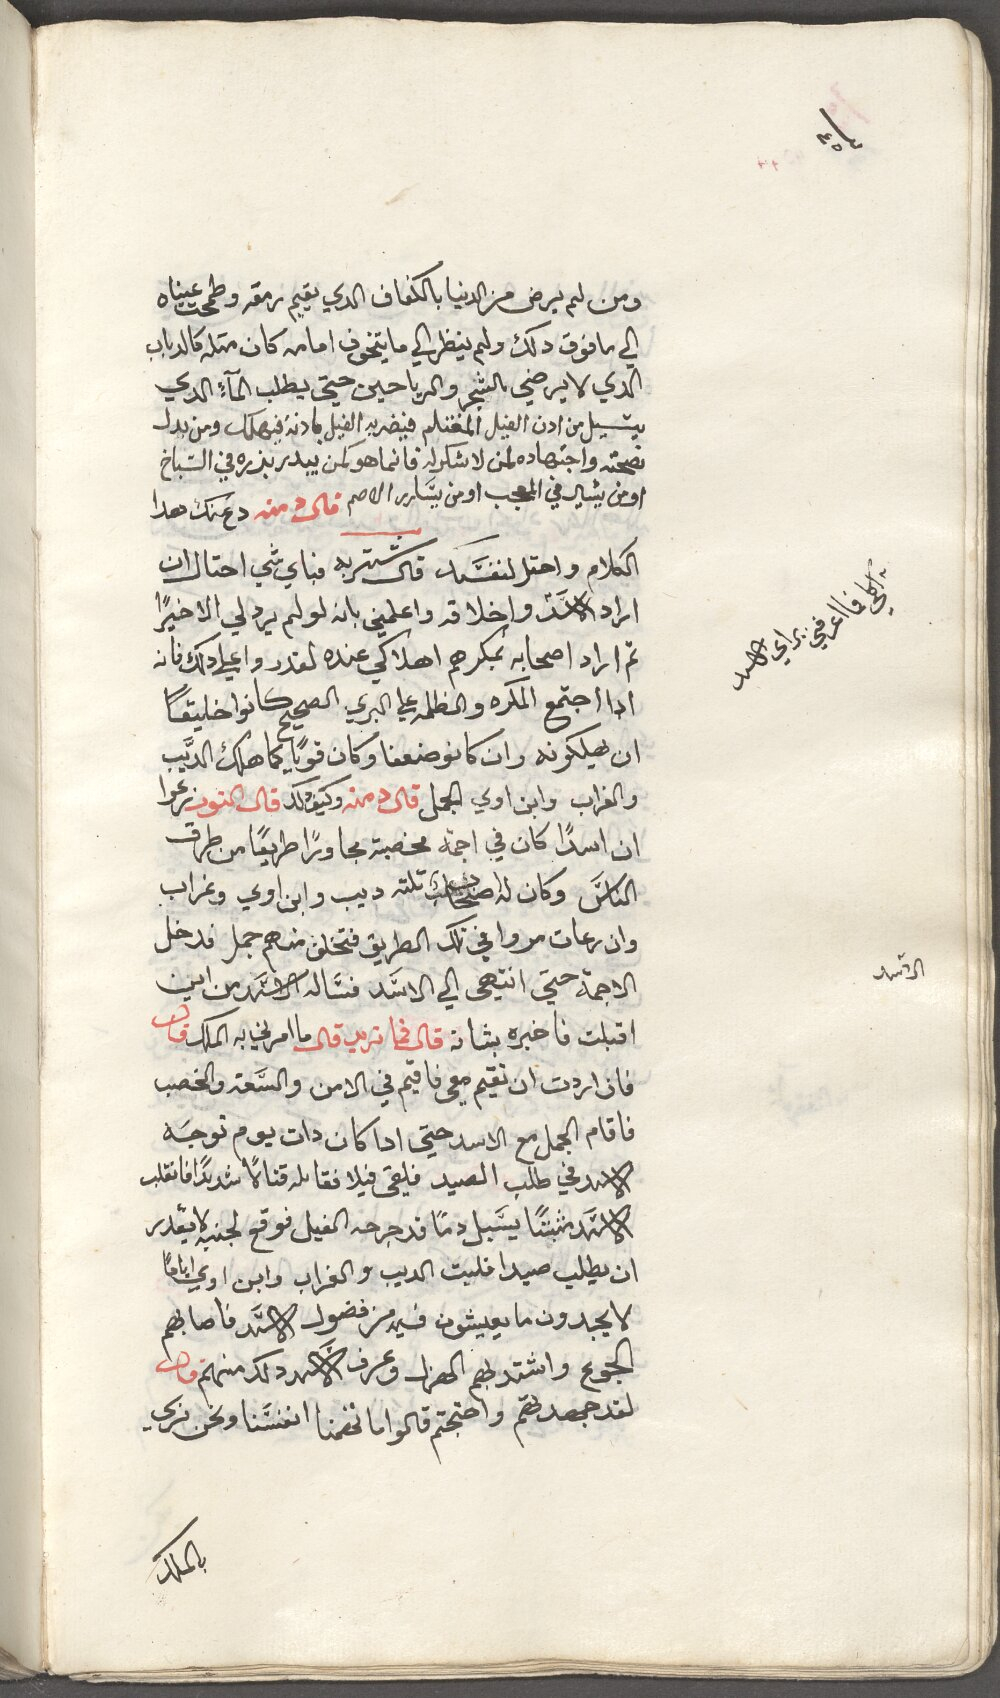 ومن لم يرض من الدنيا بالكفاف الدي يقيم رمقه وطمحت عيناه
الي ما فوق دلك ولم ينظر الي ما يتخوف امامه كان مثله كالدباب
الدي لا يرضي بالشجر والرياحين حتي يطلب المآء الدي
يسيل من ادن الفيل المغتلم فيضربه الفيل بادنه فيهلك ومن بدل
نصحته واجتهاده لمن لا شكر له فانما هو كمن يبدر بذره في السباخ
او من يشير في المعجب او من يسارر الاصم قال دمنه دع عنك هدا
الكلام واحتل لنفسك قال شتربه فباي شي احتال ان
اراد الاسد واخلاقه واعلمني بانه لو لم يرد لي الا خيرًا
تم اراد اصحابه بمكرهم اهلاكي عنده لقدروا علي دلك فانه
ادا اجتمع المكره والظلمه علي البري الصحيح كانوا خليقا
ان يهلكونه وان كانو ضعفا وكان قويًا كما هلك الديب
والغراب وابن اوي الجمل قال دمنه وكيف دلك قال التور زعموا
ان اسدًا كان في اجمة مخصبة مجاورًا طريقًا من طرق
الناس وكان له اصحاب تلته ديب وابن اوي وغراب
وان رعات مروا في تلك الطريق فتخلف منهم جمل فدخل
الاجمة حتي انتهي الي الاسد فساله الاسد من اين
اقبلت فاخبره بشانه قال فما تريد قال ما امرني به الملك قال
فان اردت ان تقيم معي فاقيم في الامن والسعة والخصب
فاقام الجمل مع الاسد حتي ادا كان دات يوم توجه
الاسد في طلب الصيد فلقي فيلا فقاتله قتالًا شديدًا فانقلب
الاسد مثقلًا يسيل دمًا قد جرحه الفيل فوقع لجنبه لا يقدر
ان يطلب صيدا فلبت الديب والغراب وابن اوي ايامًا
لا يجدون ما يعيشون فيه من فضول الاسد فاصابهم
الجوع واشتد بهم الهزال وعرف الاسد دلك منهم قال
لقد جهدتم واحتجتم قالوا ما تهمنا انفسنا ونحن نري
بالملك
الاسد